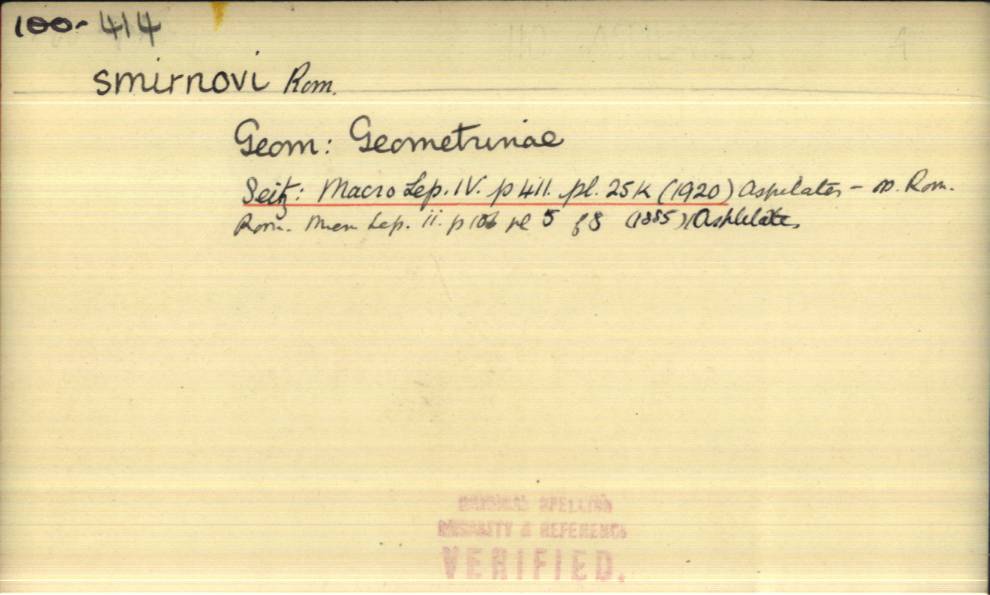 100- 414
smirnovi Rom.
Geom: Geometrinae
Seitz: Macro Lep. IV. p 411. pl. 25k (1920) Aspilates - n. Rom.
Rom. Mem Lep. ii. p 106 pl 5 f 8 (1885) Aspilates
ORIGINAL SPELLING
PRIORITY & REFERENCE
VERIFIED.